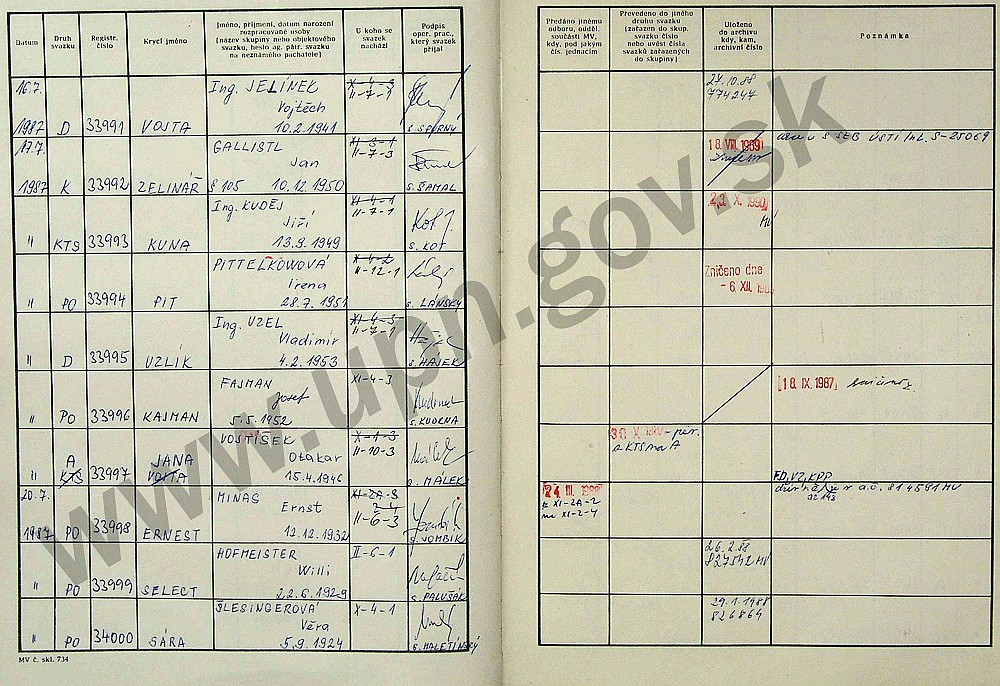 Datum
Druh svazku
Registr. číslo
Krycí jméno
Jméno, příjmení, datum narození
rozpracované osoby
(název skupiny nebo objektového
svazku, heslo ag. pátr. svazku
na neznámého pachatele)
U koho se
svazek
nachází
Podpis
oper. prac.,
který svazek
přijal
Předáno jinému
odboru, odděl.
součásti MV,
kdy, pod jakým
čís. jednacím
Převedeno do jiného
druhu svazku
(zařazen do skup.
svazku číslo
nebo uvést čísla
svazků zařazených
do skupiny)
Uloženo
do archivu
kdy, kam,
archivní číslo
Poznámka
16.7. Ing. JELÍNEK X-4-3 27.10.88
Vojtěch II-7-1 774247
1987 D 33991 VOJTA 10.2.1941 s. SPORNÝ
17.7. GALLISTL XI-3-1 18. VIII. 1989 S StB ÚSTÍ n/L. S-25069
Jan II-7-3
1987 K 33992 ZELINÁŘ S 105 10.12.1950 s. ŠAMAL
Ing. KUDĚJ XI-4-1 23. X. 1990
Jiří II-7-1 MV
" KTS 33993 KUNA 13.9.1949 s. KOT
PITTELKOWOVÁ X-4-2 Zničeno dne
Irena II-12-1 -6. XII. 198
" PO 33994 PIT 28.7.1951 s. LÁNSKÝ
Ing. UZEL XI-4-3
Vladimír II-7-1
" D 33995 UZLÍK 4.2.1953 s. HÁJEK
FAJMAN XI-4-3 18. IX. 1987
Josef
" PO 33996 KAJMAN 5.5.1952 s. KUDRNA
VOJTÍŠEK X-1-3
A JANA Otakar II-10-3 z KTS na A
" KTS 33997 VOJTA 15.4.1946 s. MÁLEK FD, VZ, KPP
20.7. MINAS XI-2A-3 24. III. 1988 a.č. 814581 MV
Ernst II-6-3 z XI-2A-2
1987 PO 33998 ERNEST 12.12.1932 s. JOMBÍK na XI-2-4
HOFMEISTER II-6-1 26.2.88
Willi 827542 MV
" PO 33999 SELECT 22.6.1929 s. PALUŠÁK
ŠLESINGEROVÁ X-4-1 29.1.1988
Věra 826864
" PO 34000 SÁRA 5.9.1924 s. MALETÍNSKÝ
MV č. skl. 734
www.upn.gov.sk